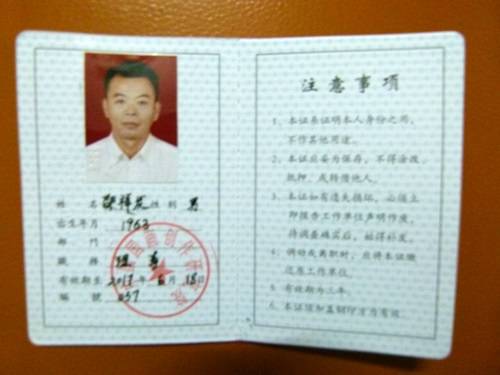 姓名 性别 男
出生年月 1963
部门
职务 理事
有效期至 2017年6月18日
编号 057
注意事项
1、本证系证明本人身份之用,
不作其他用途。
2、本证应妥为保存,不得涂改、
抵押,或转借他人。
3、本证如有遗失损坏,必须立
即报告工作单位声明作废,
待调查确实后,始得补发。
4、调动或离职时,应将本证缴
还原工作单位。
5、有效期为三年。
6、本证须加盖钢印方为有效。